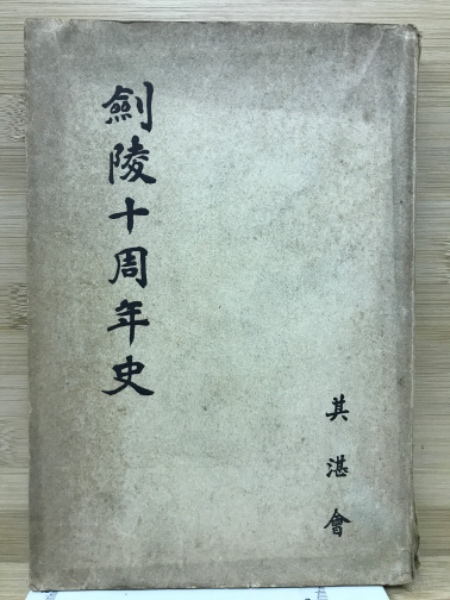 劍陵十周年史
其湛會